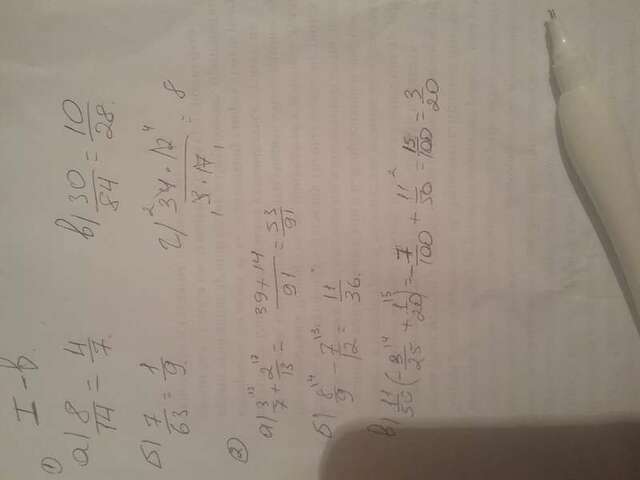 I-В.
①
а) 8/14 = 4/7   в) 30/84 = 10/28.
б) 7/63 = 1/9   г) 34² · 12⁴ / 3 · 17 = 8
②
а) 3/7 + 2/13 = 39+14/91 = 53/91
б) 8/9 - 7/12 = 11/36.
в) 11/50 (- 3/25 + 1/20) = -7/100 + 11/50² = 15/100 = 3/20